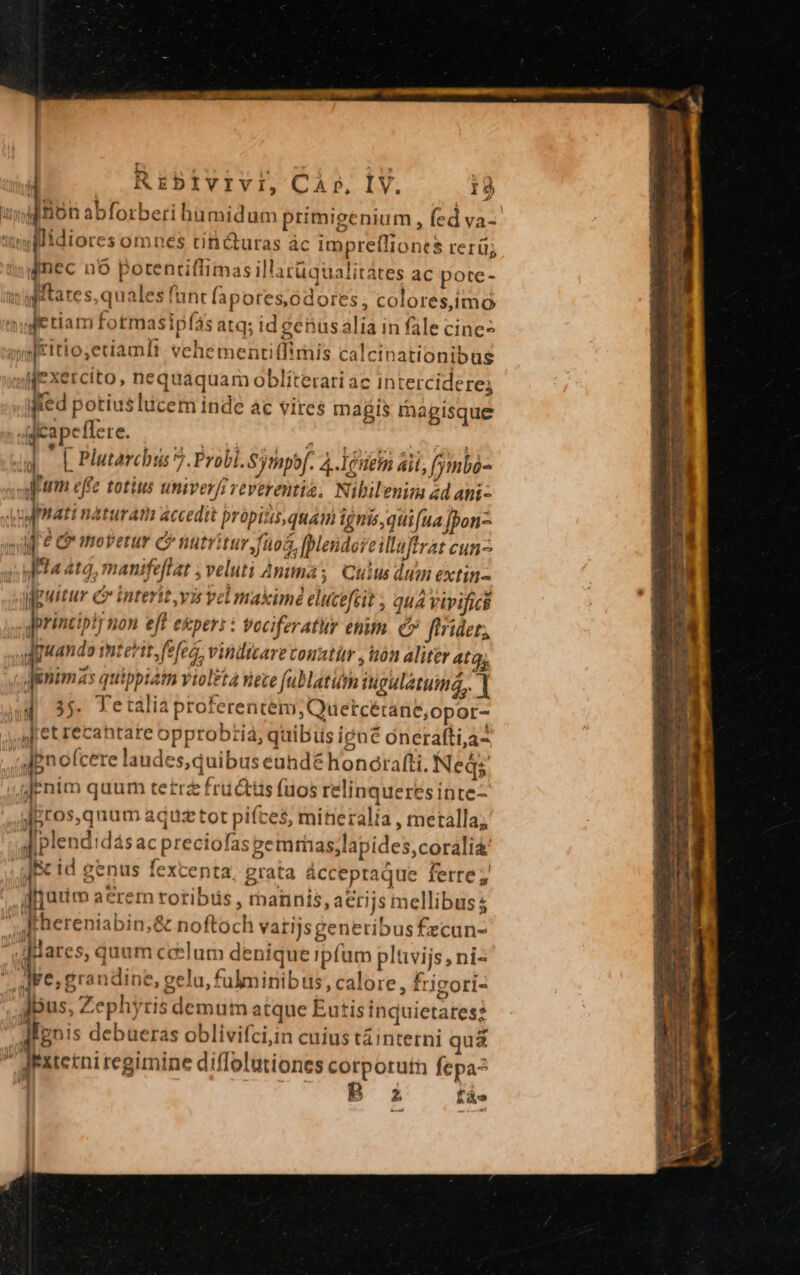 REDIVIVI, CAP. IV. 19
non abſorberi humidum primigenium, ſed va-
lidiores omnes tincturas ac impreſſiones rerū,
nec nō potentiſſimas illarūqualitátes ac pote-
ſtates, quales ſunt ſapores, odores, colores, imò
etiam formas ipſas atq; id genus alia in ſale cine-
ritio, etiamſi vehementiſſimis calcinationibus
exercito, nequaquam obliterari ac intercidere;
ſed potius lucem inde ac vires magis magisque
capeſſere.
[ Plutarchus 7. Probl. Sympoſ. 4. Ignem ait, ſymbo-
lum eſſe totius univerſi reverentia. Nihil enim ad ani-
mati naturam accedit propius, quàm ignis, qui ſua ſpon-
te & movetur & nutritur, ſuoq́, ſplendore illuſtrat cun-
cta atq, manifeſtat, veluti Anima; Cuius dum extin-
guitur & interit, vis vel maximè eluceſcit, quâ vivifici
principij non eſt expers: vociferatur enim & ſtridet,
quando interit, ſeſeq́, vindicare conatur, non aliter atq,
animas quippiam violēta nece ſublatum iugulatumq́,. ]
35. Te talia proferentem, Quercetane, opor-
tet recantare opprobria, quibus ignē oneraſti, a-
gnoſcere laudes, quibus eundē honoraſti. Neq;
enim quum tetræ fructus ſuos relinqueres inte-
gros, quum aquæ tot piſces, mineralia, metalla,
ſplendidas ac precioſas gemmas, lapides, coralia
& id genus ſexcenta, grata acceptaque ferre,
quum aërem roribus, mannis, aërijs mellibus;
thereniabin, & noſtoch varijs generibus fæcun-
dares, quum cœlum denique ipſum pluvijs, ni-
ve, grandine, gelu, fulminibus, calore, frigori-
bus, Zephyris demum atque Euris inquietares:
Ignis debueras obliviſci, in cuius tā interni quā
externi regimine diſſolutiones corporum ſepa-
B 2 ra-